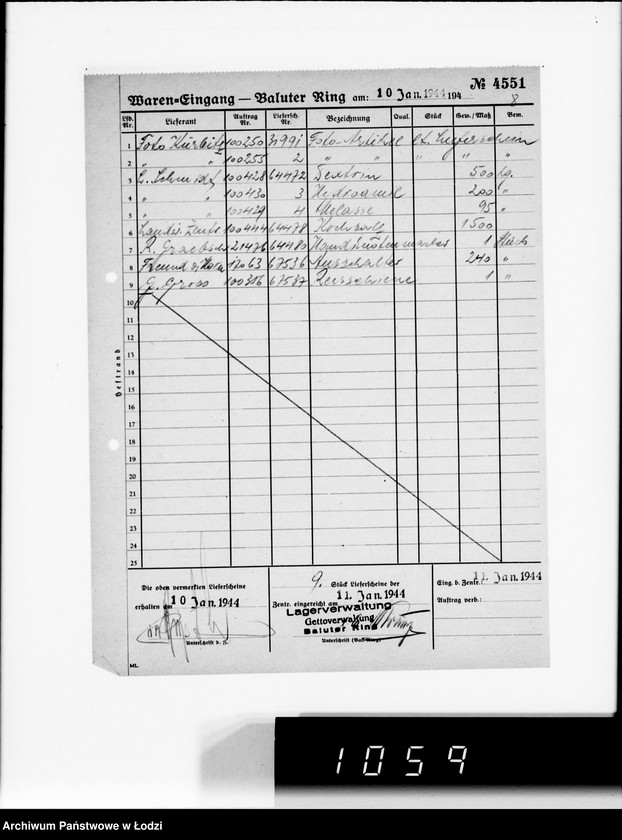 № 4551
Waren-Eingang — Baluter Ring am: 10 Jan. 1944 194
8
Lfd. Nr. Lieferant Auftrag Nr. Liefersch. Nr. Bezeichnung Qual. Stück Gew./Maß Bem.
1 Foto Kürbitz 100250 31991 Foto-Artikel lt. Lieferschein
2 " " 100255 2 " " " " "
3 E. Schmidt 100428 64472 Dextrin 500 kg.
4 " " 100430 3 200 "
5 " " 100429 4 Melasse 95 "
6 100444 64478 Kochsalz 1500 "
7 R. 21476 64480 1 Stück
8 Freund 17063 67536 Ausschalter 240 "
9 G. Gross 100316 67587 Reissschiene 1 "
10
11
12
13
14
15
16
17
18
19
20
21
22
23
24
25
Heftrand
Die oben vermerkten Lieferscheine
erhalten am 10 Jan. 1944
Unterschrift d. A.
9. Stück Lieferscheine der
Zentr. eingereicht am 11 Jan. 1944
Lagerverwaltung
Gettoverwaltung
Baluter Ring
Unterschrift (Balt.-Ring)
Eing. b. Zentr.: 11. Jan. 1944
Auftrag verb.:
ML.
1059
Archiwum Państwowe w Łodzi